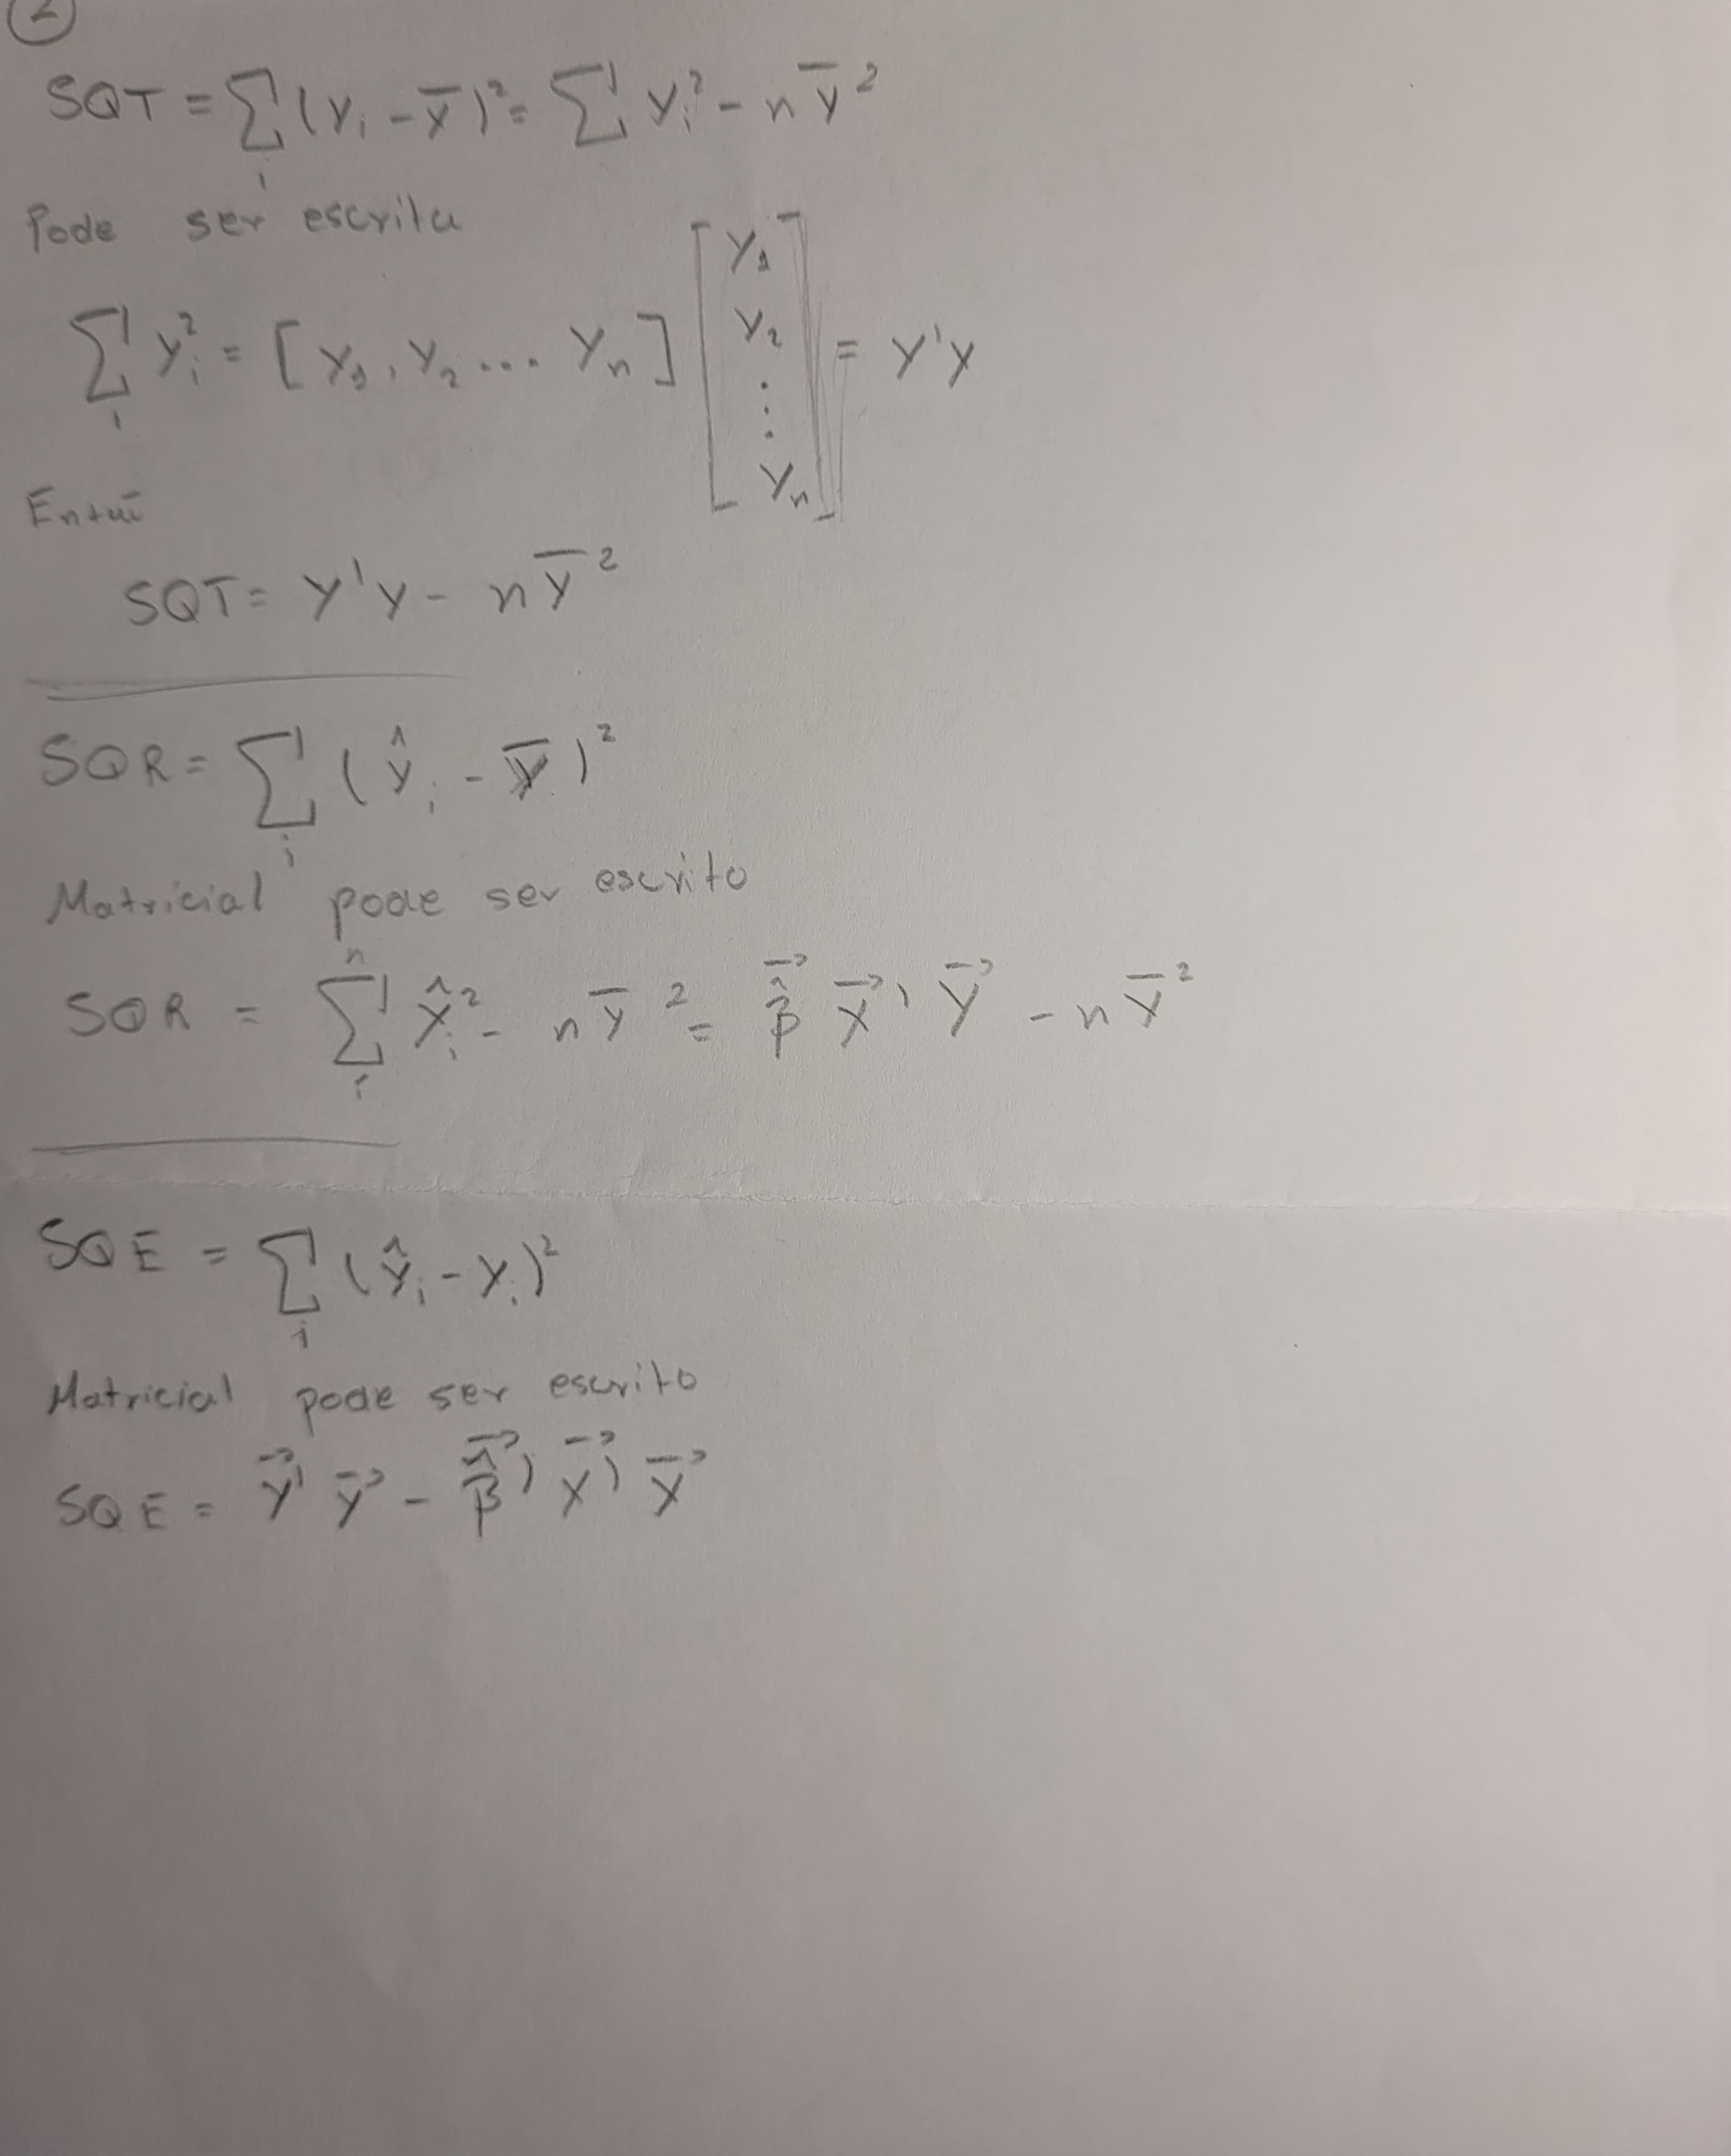 2
SQT = ∑i (Yi - Ȳ)² = ∑ Yi² - nȲ²
Pode ser escrita
∑i Yi² = [Y1, Y2 ... Yn] [Y1 Y2 ⋮ Yn] = Y'Y
Entaī
SQT = Y'Y - nȲ²
SQR = ∑i (Ŷi - Ȳ)²
Matricial pode ser escrito
SQR = ∑i^n Ŷi² - nȲ² = β̂⃗ X⃗' Y⃗ - nȲ²
SQE = ∑i (Ŷi - Yi)²
Matricial pode ser escrito
SQE = Y⃗' Y⃗ - β̂⃗' X⃗' Y⃗